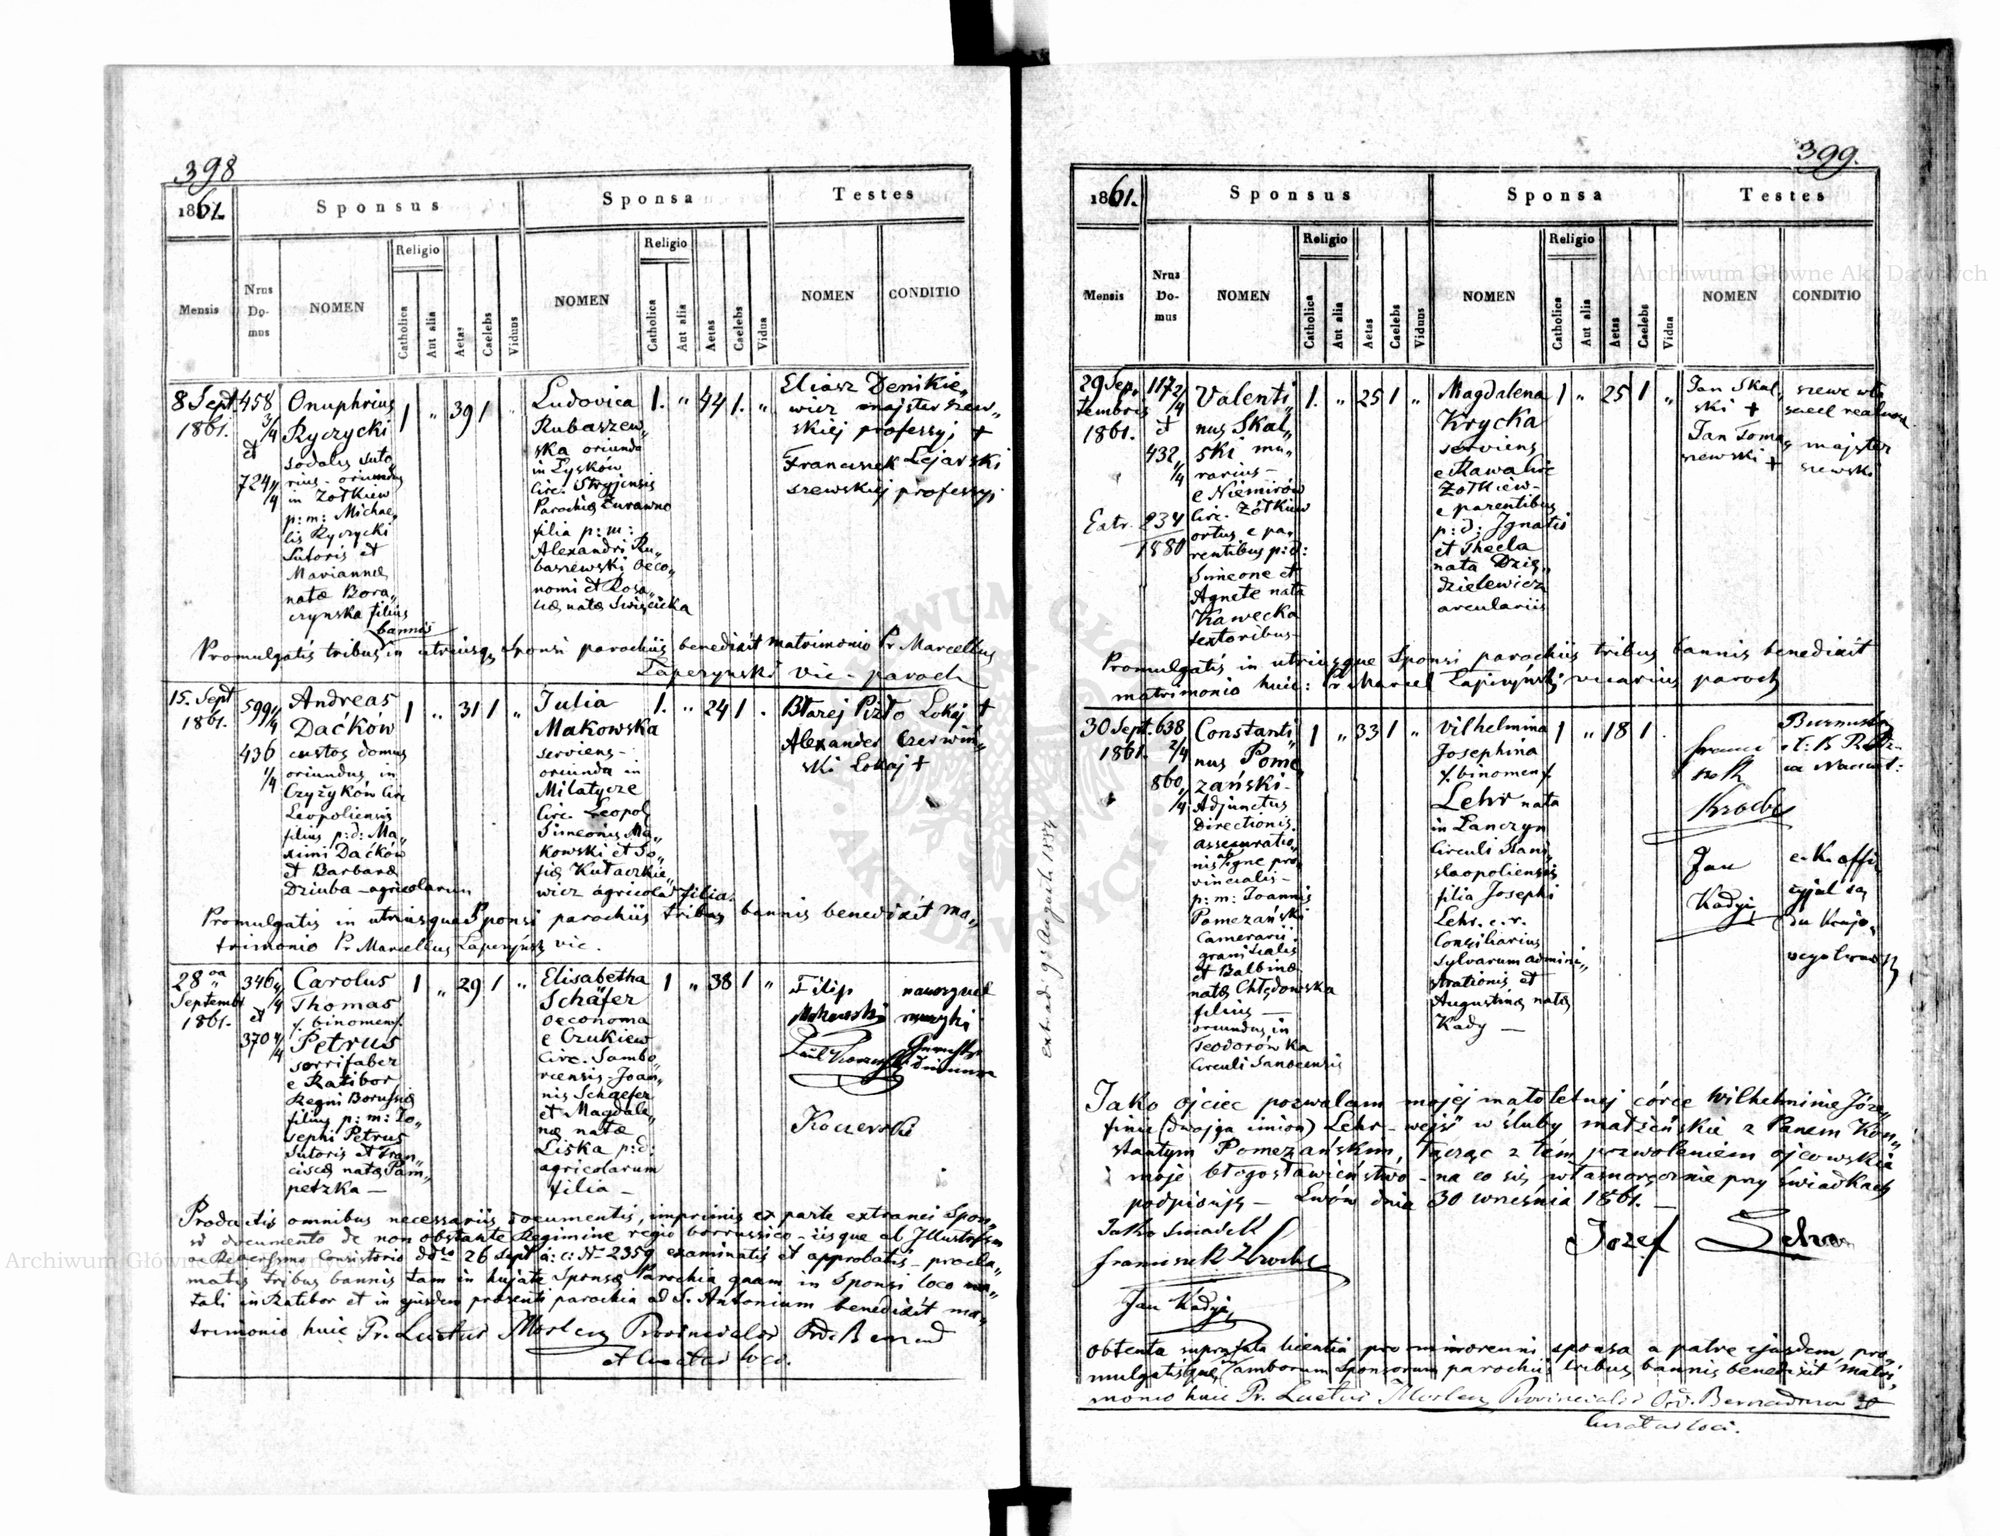 398
1861.
Sponsus
Sponsa
Testes
Mensis
Nrus Do- mus
NOMEN
Religio
Catholica
Aut alia
Aetas
Caelebs
Viduus
NOMEN
Religio
Catholica
Aut alia
Aetas
Caelebs
Vidua
NOMEN
CONDITIO
8 Sept.
1861.
458
3/4
et
724
/4
Onuphrius
Ryczycki
sodalis suto„
rius - oriundus
in Żółkiew
p: m: Michae„
lis Ryczycki
Sutoris et
Mariannæ
natæ Bora„
czynska filius
1 „ 39 1 „
Ludovica
Rubaszew„
ska oriunda
in Łysków
Circ. Stryjensis
Parochiæ Żurawno
filia p: m:
Alexandri Ru„
baszewski oeco„
nomi et Rosa„
liæ natæ Swięcicka
1. „ 44 1. „
Eliasz Denikie„
wicz majster szew„
skiej professyj +
Franciszek Lejarski
szewskiej professyj
bannis
Promulgatis tribus in utriusq, Sponsi parochiis benedixit matrimonio Pr Marcellus
Łapczynski vic - paroch
15. Sept
1861.
599 /4
436
1/4
Andreas
Daćków
custos domus
oriundus in
Czyżyków Circ
Leopoliensis
filius p: d: Ma„
ximi Daćków
et Barbaræ
Dziuba - agricolarum
1 „ 31 1 „
Julia
Makowska
serviens -
oriunda in
Milatycze
Circ. Leopol
Simeonis Ma„
kowski et So„
fiæ Kutaczkie„
wicz agricolar filia.
1. „ 24 1 .
Błażej Pizło Lokaj +
Alexander Czerwiń„
ski Lokaj +
Promulgatis in utriusque Sponsi parochiis tribus bannis benedixit ma„
trimonio Pr Marcellus Łapczynsk vic.
28va
Septembr
1861.
346 /4
et
370 4/4
Carolus
Thomas
/. binomen/.
Petrus
serrifaber
e Ratibor
Regni Borussiæ
filius p: m: Jo„
sephi Petrus
Sutoris et Fran„
ciscæ natæ Pam„
petzka —
1 „ 29 1 „
Elisabetha
Schäfer
oeconoma
e Czukiew
Circ. Sambo„
riensis - Joan„
nis Schaefer
et Magdale„
næ natæ
Liska p: d:
agricolarum
filia —
1 „ 38 1 „
Filip
Makowski
Koczerski
Productis omnibus necessariis documentis, imprimis ex parte extranei Spon„
si documento de non obstante Regimine regio borrussico - iisque ab Illustrissm
ac Reverssmo Consistorio ddto 26 Sept a: c: N 2359 examinatis et approbatis - procla„
matis tribus bannis tam in hujate Sponsæ Parochia quam in Sponsi loco na„
tali in Ratibor et in ejusdem præsenti parochia ad S. Antonium benedixit ma„
trimonio huic Pr. Laetus Morlen Provincialis Ord. Bernard
et Curatus loci.
399.
1861.
Sponsus
Sponsa
Testes
Mensis
Nrus Do- mus
NOMEN
Religio
Catholica
Aut alia
Aetas
Caelebs
Viduus
NOMEN
Religio
Catholica
Aut alia
Aetas
Caelebs
Vidua
NOMEN
CONDITIO
29 Sep„
tembris
1861.
117 2/4
et
432
/4
Extr. 234
1880
Valenti„
nus Skal„
ski mu„
rarius -
e Niemirów
Circ. Żółkiew
ortus e pa„
rentibus p: d:
Simeone et
Agnete nata
Kawecka
textoribus
1. „ 25 1 „
Magdalena
Krycka
serviens
e Rawa Circ
Żółkiew -
e parentibus
p: d: Ignatio
et Thecla
nata Dzię„
dzielewicz
arculariis
1 „ 25 1 „
Jan Skal„
ski +
Jan Toma„
szewski +
szewc
majster
szewski
Promulgatis in utriusque Sponsi parochiis tribus bannis benedixit
matrimonio huic: Pr Marcel Łapczyński vicarius paroch
30 Sept.
1861.
638
2/4
860
/4
Constanti„
nus Pome„
zański -
Adjunctus
Directionis
assecuratio„
nis ab igne pro„
vincialis -
p: m: Joannis
Pomezański
Camerarii
granicialis
et Balbinæ
natæ Chłędowska
filius —
oriundus in
Teodorówka
Circuli Sanocensis
1 „ 33 1 „
Vilhelmina
Josephina
/. binomen/.
Lehr nata
in Lanczyn
Circuli Stani„
slaopoliensis
filia Josephi
Lehr. c. r.
Consiliarius
sylvarum admini„
strationis et
Augustinæ natæ
Kady —
1 „ 18 1 .
Franci
szek
Kroebl
Jan
Kadyj
Burmistrz
c. k. offi
cyjal są„
du krajo„
wego
extradi 9 Augusti 1884
Jako ojciec pozwalam mojej małoletnej córce Wilhelminie Józe„
finie (dwojga imion) Lehr - wejść w śluby małżeńskie z Panem Kon„
stantym Pomezańskim, łącząc z tém pozwoleniem ojcowskié
moje błogosławieństwo - na co się własnoręcznie przy świadkach
podpisuję — Lwów dnia 30 września 1861. —
Jako świadek
Józef Lehr
Franciszek Kroebl
Jan Kadyj
Obtenta suprafata licentia pro minorenni sponsa a patre ejusdem, pro„
mulgatisque in amborum Sponsorum parochiis tribus bannis benedixit matri„
monio huic Pr. Laetus Morlen Provincialis Ord. Bernardinor et
Curatus loci.
Archiwum Główne Akt Dawnych
Archiwum Główne Akt Dawnych
ARCHIWUM GŁÓWNE AKT DAWNYCH